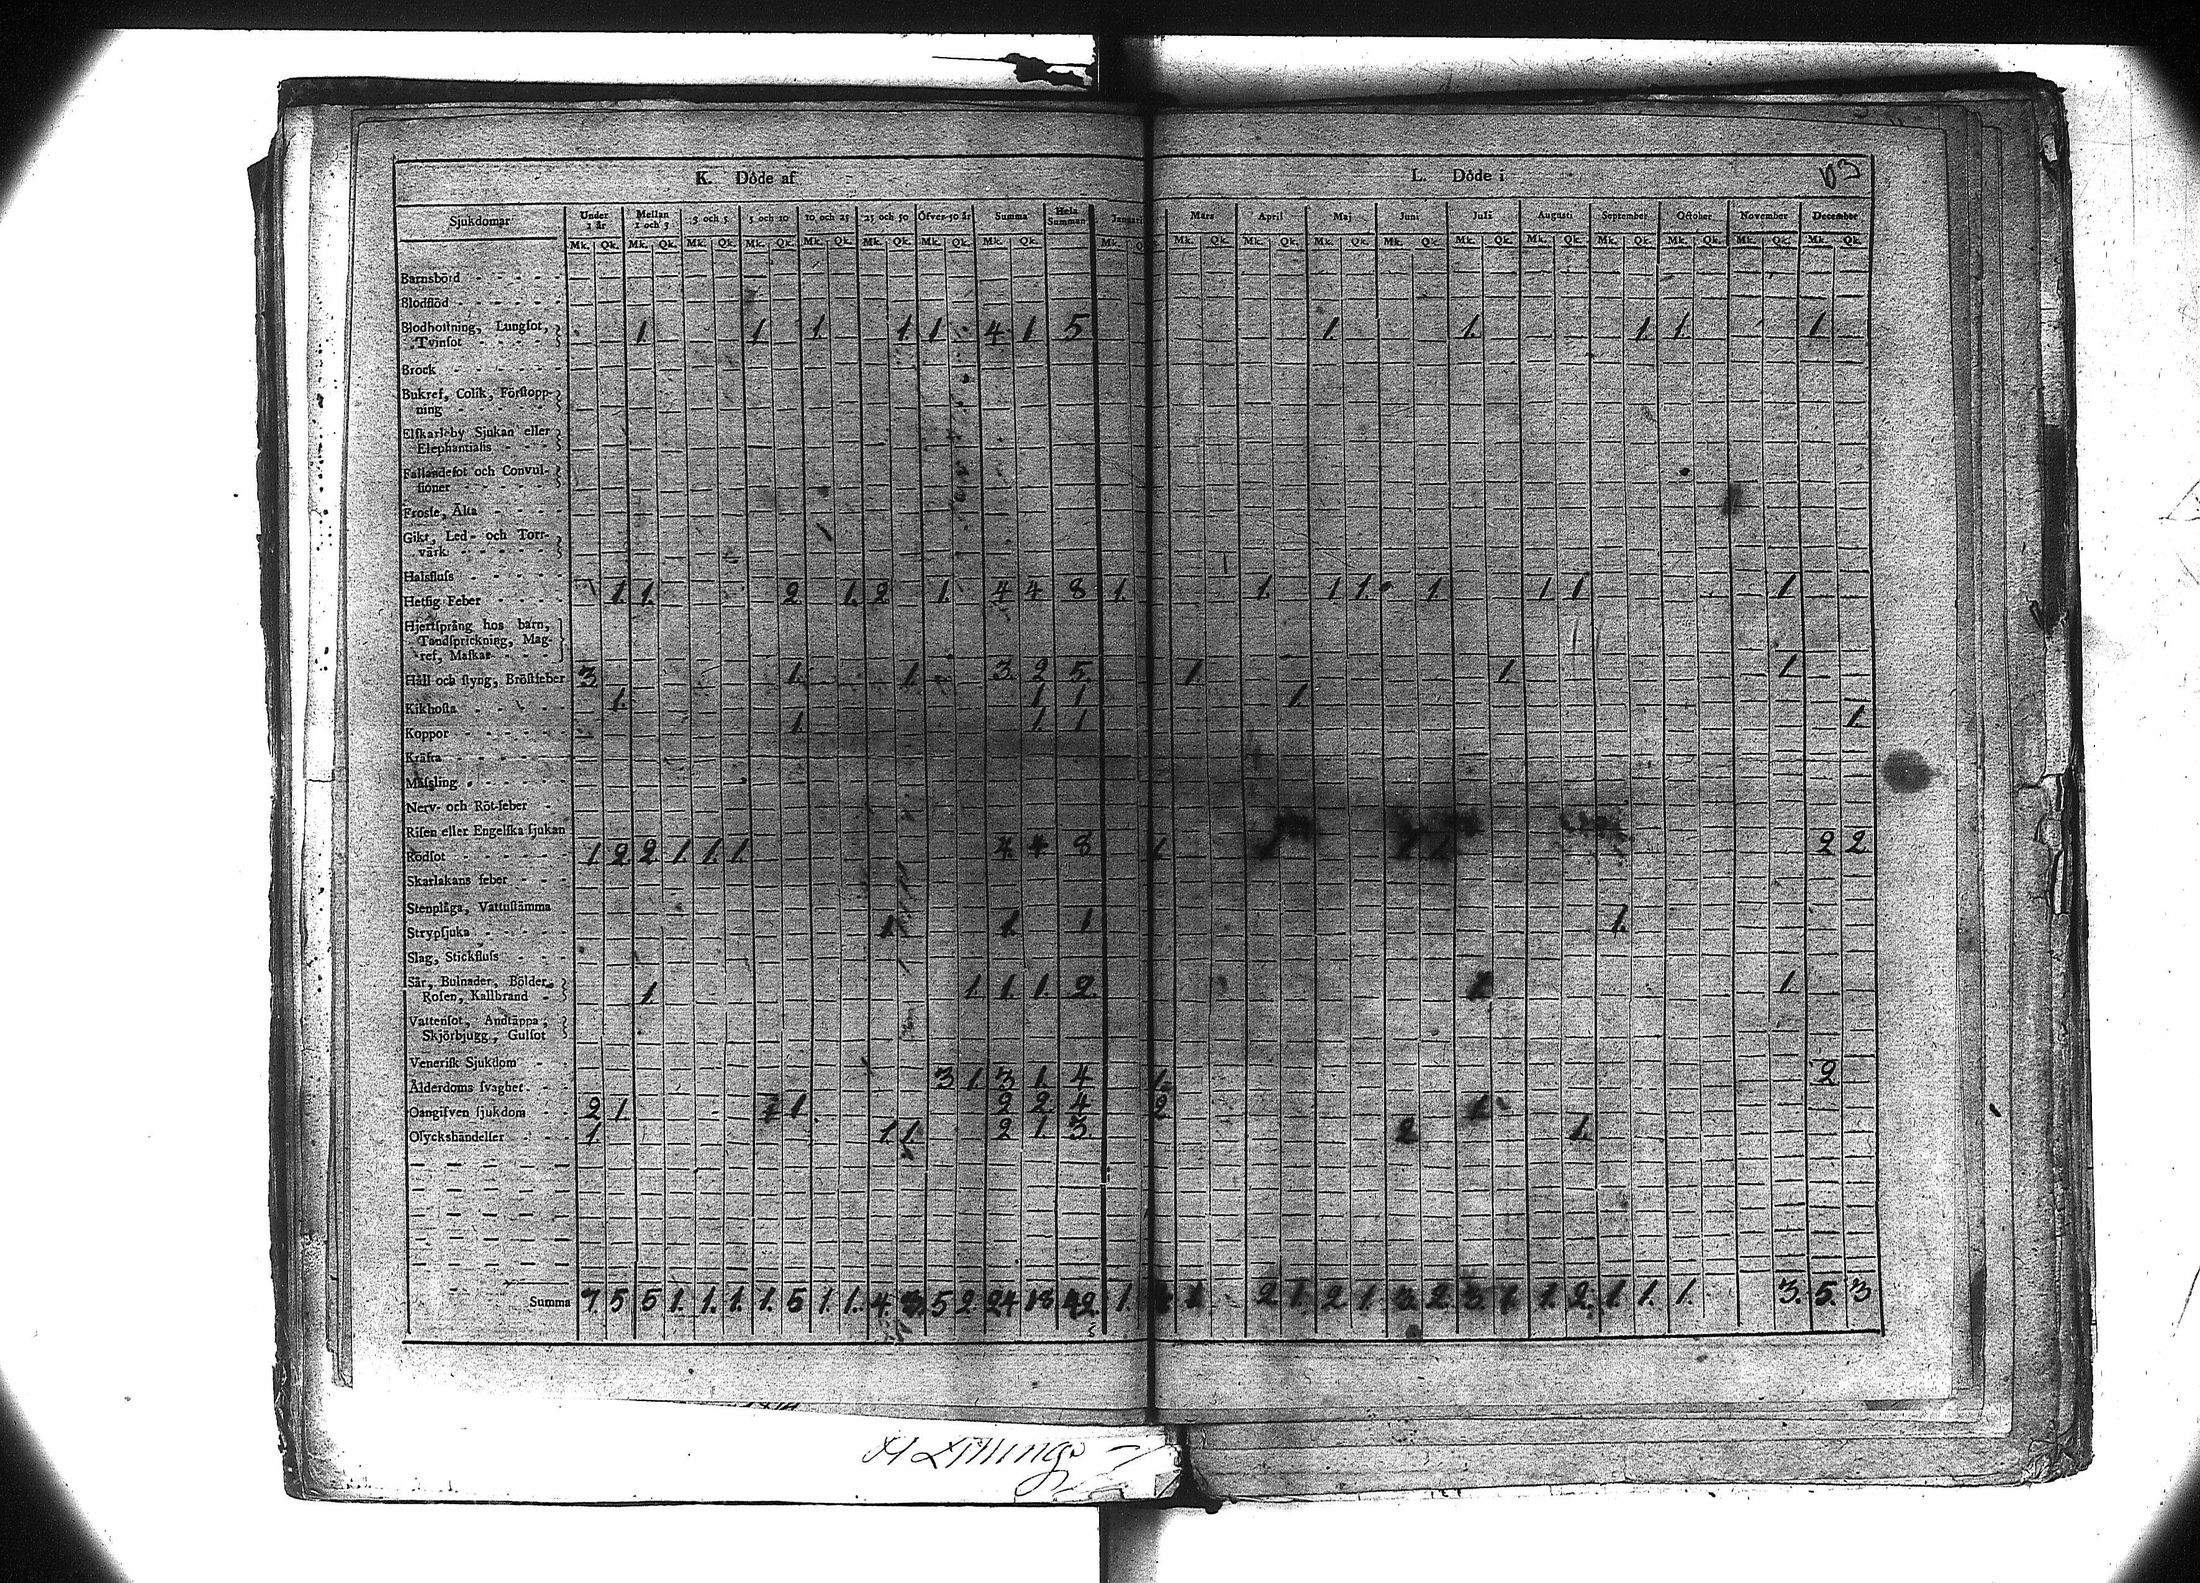 K. Döde af
L. Döde i
Sjukdomar
Under 1 år
Mellan 1 och 3
3 och 5
5 och 10
10 och 25
25 och 50
Öfver 50 år
Summa
Hela Summan
Januari
Mars
April
Maj
Juni
Juli
Augusti
September
October
November
December
Mk. Qk. Mk. Qk. Mk. Qk. Mk. Qk. Mk. Qk. Mk. Qk. Mk. Qk. Mk. Qk. Mk. Mk. Qk. Mk. Qk. Mk. Qk. Mk. Qk. Mk. Qk. Mk. Qk. Mk. Qk. Mk. Qk. Mk. Qk. Mk. Qk.
Barnsbörd
Blodflöd
Blodhoſtning, Lungſot,
Tvinſot 1. 1 1. 1. 1 4 1. 5 1. 1. 1. 1. 1
Brock
Bukref, Colik, Förſtopp-
ning
Elfkarleby Sjukan eller
Elephantiaſis
Fallandeſot och Convul-
ſioner
Froſſe, Älta
Gikt, Led- och Torr-
värk
Halsfluſs
Hetſig Feber 1. 1. 2 1. 2 1. 4 4 8 1. 1. 1 1. 1 1 1 1
Hjertſprång hos barn,
Tandſprickning, Mag-
ref, Maſkar
Håll och ſtyng, Bröſtfeber 3 1. 1. 3 2 5. 1 1. 1.
Kikhoſta 1. 1 1 1.
Koppor 1. 1. 1 1.
Kräfta
Mäſsling
Nerv- och Röt-feber
Riſen eller Engelſka ſjukan
Rödſot 1 2 2 1. 1. 1. 4. 4 8 2 2
Skarlakans feber
Stenplåga, Vattuſtämma
Strypſjuka 1 1. 1 1.
Slag, Stickfluſs
Sår, Bulnader, Bölder,
Roſen, Kallbrand 1. 1. 1. 1. 2. 1 1.
Vattenſot, Andtäppa,
Skjörbjugg, Gulſot
Veneriſk Sjukdom
Ålderdoms ſvaghet 3 1. 3 1. 4 1. 2
Oangifven ſjukdom 2 1. 1 2 2 4 2 1
Olyckshändelſer 1. 1. 1. 2 1. 3. 2 1.
Summa 7 5 5 1. 1. 1. 1. 5 1. 1. 4. 3. 5 2 24 18 42. 1. 1 2 1. 2 1. 3 2. 3. 1. 1. 2. 1. 1. 1. 3. 5. 3